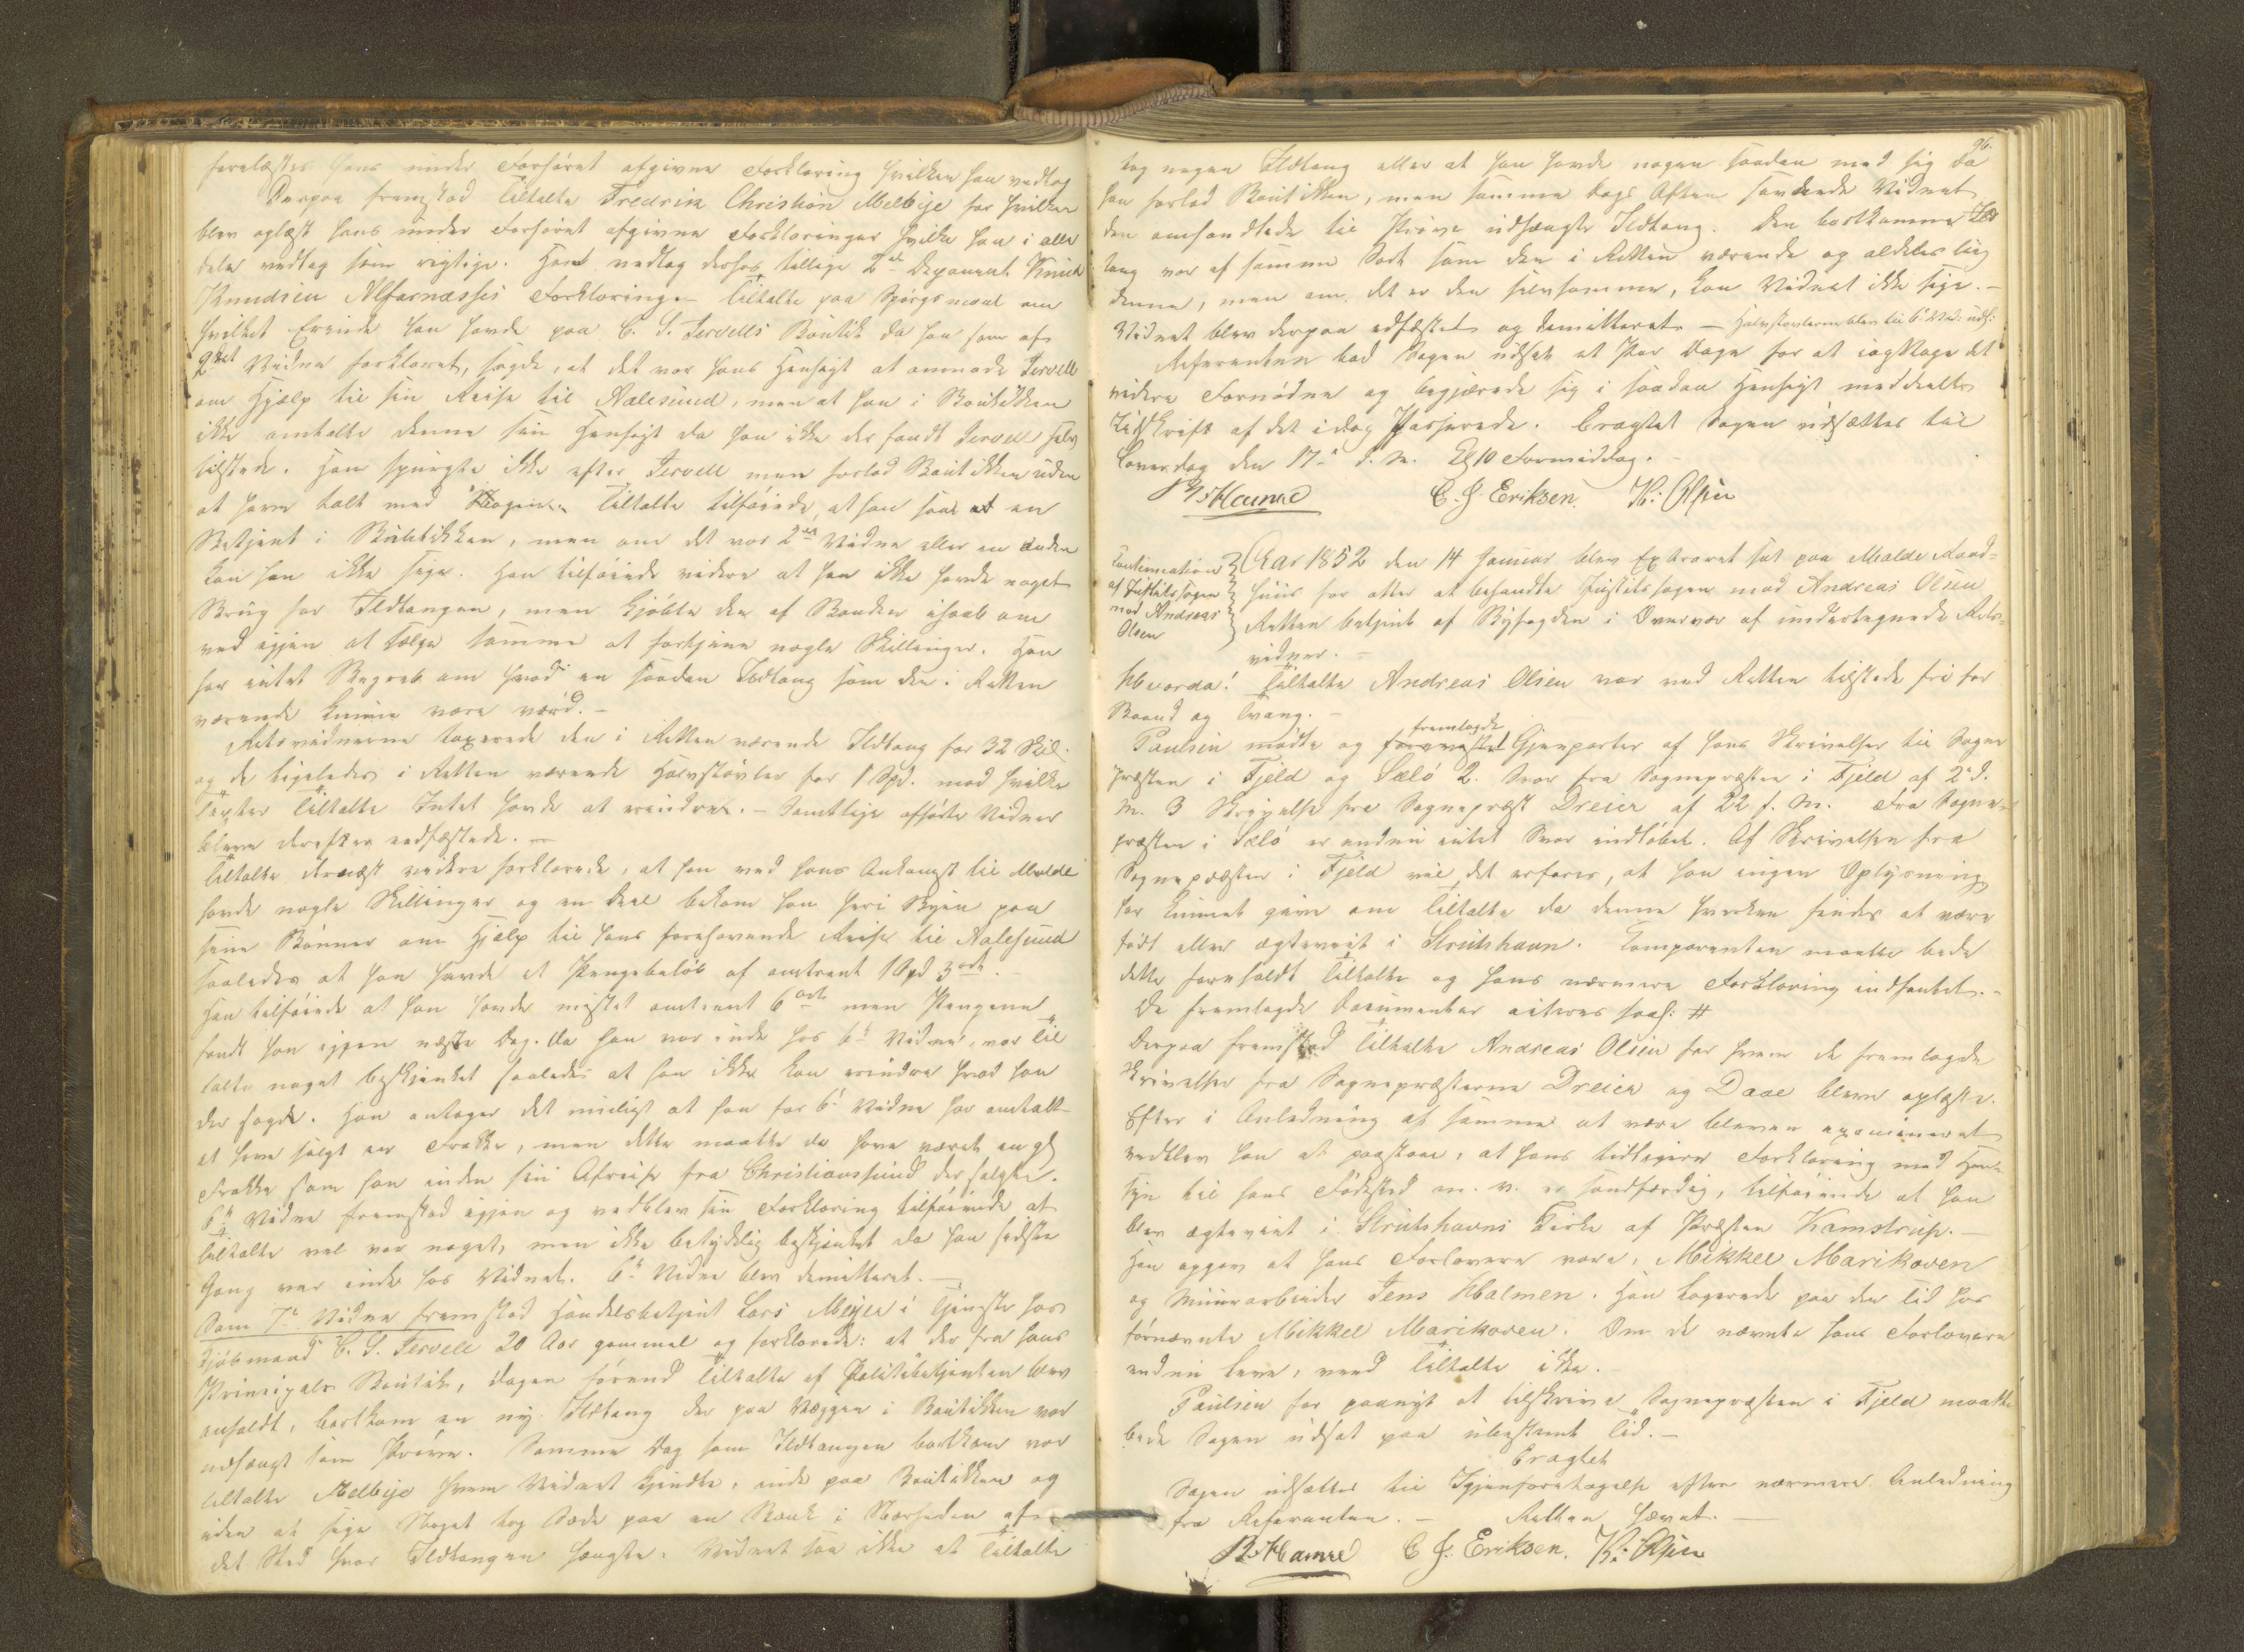 forelæstes hans under Forhøret afgivne Forklaring hvilken han vedtog
Derpaa fremstod Tiltalte Fredrik Christian Melbye for hvilken
blev oplæst hans under Forhøret afgivne Forklaringer hvilke han i alle
dele vedtog som rigtige. Han vedtog derhos tillige 2det Deponent Knud
Knudsen Alfarnæsses Forklaring. - Tiltalte paa Spørgsmaal om
hvilket Erinde han havde paa C. S. Jervells Boutik da han som af
2det Vidne forklaret, sagde, at det var hans Hensigt at anmode Jervell
om Hjælp til sin Reise til Aalesund, men at han i Boutikken
ikke omtalte denne sin Hensigt da han ikke der fandt Jervell selv
tilstede. Han spurgte ikke efter Jervell men forlod Boutikken uden
at have talt med Nogen. Tiltalte tilføiede, at han saae et en
Betjent i Boutikken, men om det var 2det Vidne eller en Anden
kan han ikke sige. Han tilføiede videre at han ikke havde noget
Brug for Ildtangen, men kjøbte den af Bonden ihaab om
ved igjen at sælge samme at fortjene nogle Skillinger. Han
har intet Begreb om hvad en saadan Ildtang som den i Retten
værende kunne være værd. -
Retsvidnerne taxerede den i Retten værende Ildtang for 32 Skil.
og de ligeledes i Retten værende Halvstøvler for 1 Spd. mod hvilke
Taxter Tiltalte Intet havde at erindre. - Samtlige afhørte Vidner
bleve derefter edfæstede. -
Tiltalte dernæst videre forklarede, at han ved hans Ankomst til Molde
havde nogle Skillinger og en Deel bekom han her i Byen paa
sine Bønner om Hjælp til hans forehavende Reise til Aalesund
saaledes at han havde et Pengebeløb af omtrent 1 Spd 3 ort. -
Han tilføiede at han havde mistet omtrent 6 ort men Pengene
fandt han igjen næste Dag. Da han var inde hos 6te Vidne, var Til
talte noget beskjenket saaledes at han ikke kan erindre hvad han
der sagde. Han antager det muligt at han for 6te Vidne har omtalt
at have solgt en Frakke, men dette maatte da have været en gl.
Frakke som han inden sin Afreise fra Christianssund der solgte.
6te Vidne fremstod igjen og vedblev sin Forklaring tilføiende at
Tiltalte vel var noget, men ikke betydelig beskjenket da han sidste
Gang var inde hos Vidnet. 6te Vidne blev demitteret. -
Som 7de Vidne fremstod Handelsbetjent Lars Meyer i Tjeneste hos
Kjøbmand C. S. Jervell 20 Aar gammel og forklarede: at der fra hans
Principals Boutik, dagen førend Tiltalte af Politibetjenten blev
anholdt, bortkom en ny Ildtang der paa Væggen i Boutikken var
udhængt som Prøve. Samme Dag som Ildtangen bortkom var
Tiltalte Melbye hvem Vidnet kjendte, inde paa Boutikken og
uden at sige Noget tog Sæde paa en Bænk i Nærheden af
det Sted hvor Ildtangen hængte. Vidnet saa ikke at Tiltalte
96.
tog nogen Ildtang eller at han havde nogen saadan med sig da
han forlod Boutikken, men samme Dags Aften savnede Vidnet
den omhandlede til Prøve udhængte Ildtang. Den bortkomne Ild
tang var af samme Sort som den i Retten værende og aldeles liig
denne, men om det er den selvsamme, kan Vidnet ikke sige. -
Vidnet blev derpaa edfæstet og demitteret - Halvstøvlerne blev til 6te Vid: udl:
Referenten bad Sagen udsat et Par Dage for at iagttage det
videre Fornødne og begjærede sig i saadan Hensigt meddeelte
Udskrift af det idag Passerede. Eragtet Sagen udsættes til
Løverdag den 17de d. M. Kl 10 Formiddag. -
B. Hamre C. J. Eriksen. K: Olsen
Continuation
af Justitssagen
mod Andreas
Olsen
Aar 1852 den 14 Januar blev Extraret sat paa Molde Raad-
huus for atter at behandle Justitssagen mod Andreas Olsen
Retten betjent af Byfogden i Overvær af undertegnede Rets-
vidner. -
Hvorda! Tiltalte Andreas Olsen var ved Retten tilstede fri for
Baand og Tvang. -
fremlagde
Paulsen mødte og Gjenparter af hans Skrivelser til Sogne
præsten i Fjeld og Sælø 2. Svar fra Sognepræsten i Fjeld af 2 d.
M. 3 Skrivelse fra Sognepræst Dreier af 22 f. M. Fra Sogne-
præsten i Sælø er endnu intet Svar indløbet. Af Skrivelsen fra
Sognepræsten i Fjeld vil det erfares, at han ingen Oplysning
har kunnet give om Tiltalte da denne hverken findes at være
født eller ægteviet i Strudshavn. Comparenten maatte bede
dette foreholdt Tiltalte og hans nærmere Forklaring indhentet. -
De fremlagde Documenter acteres saal: #
Derpaa fremstod Tiltalte Andreas Olsen for hvem de fremlagde
Skrivelser fra Sognepræsterne Dreier og Daae bleve oplæste.
Efter i Anledning af samme at være bleven examineret
vedblev han at paastaae, at hans tidligere Forklaring med Hen-
syn til hans Fødested m. v. er sandfærdig, tilføiende at han
blev ægteviet i Strudshavns Kirke af Præsten Kamstrup. -
Han opgav at hans Forlovere vare, Mikkel Marikoven
og Muurarbeider Jens Halmen. Han logerede paa den tid hos
førnævnte Mikkel Marikoven. Om de nævnte hans Forlovere
endnu leve, veed Tiltalte ikke. -
Paulsen for paanyt at tilskrive Sognepræsten i Fjeld maatte
bede Sagen udsat paa ubestemt Tid. -
Eragtet
Sagen udsættes til Igjenforetagelse efter nærmere Anledning
fra Referenten. - Retten hævet. -
B. Hamre C J. Eriksen. K: Olsen